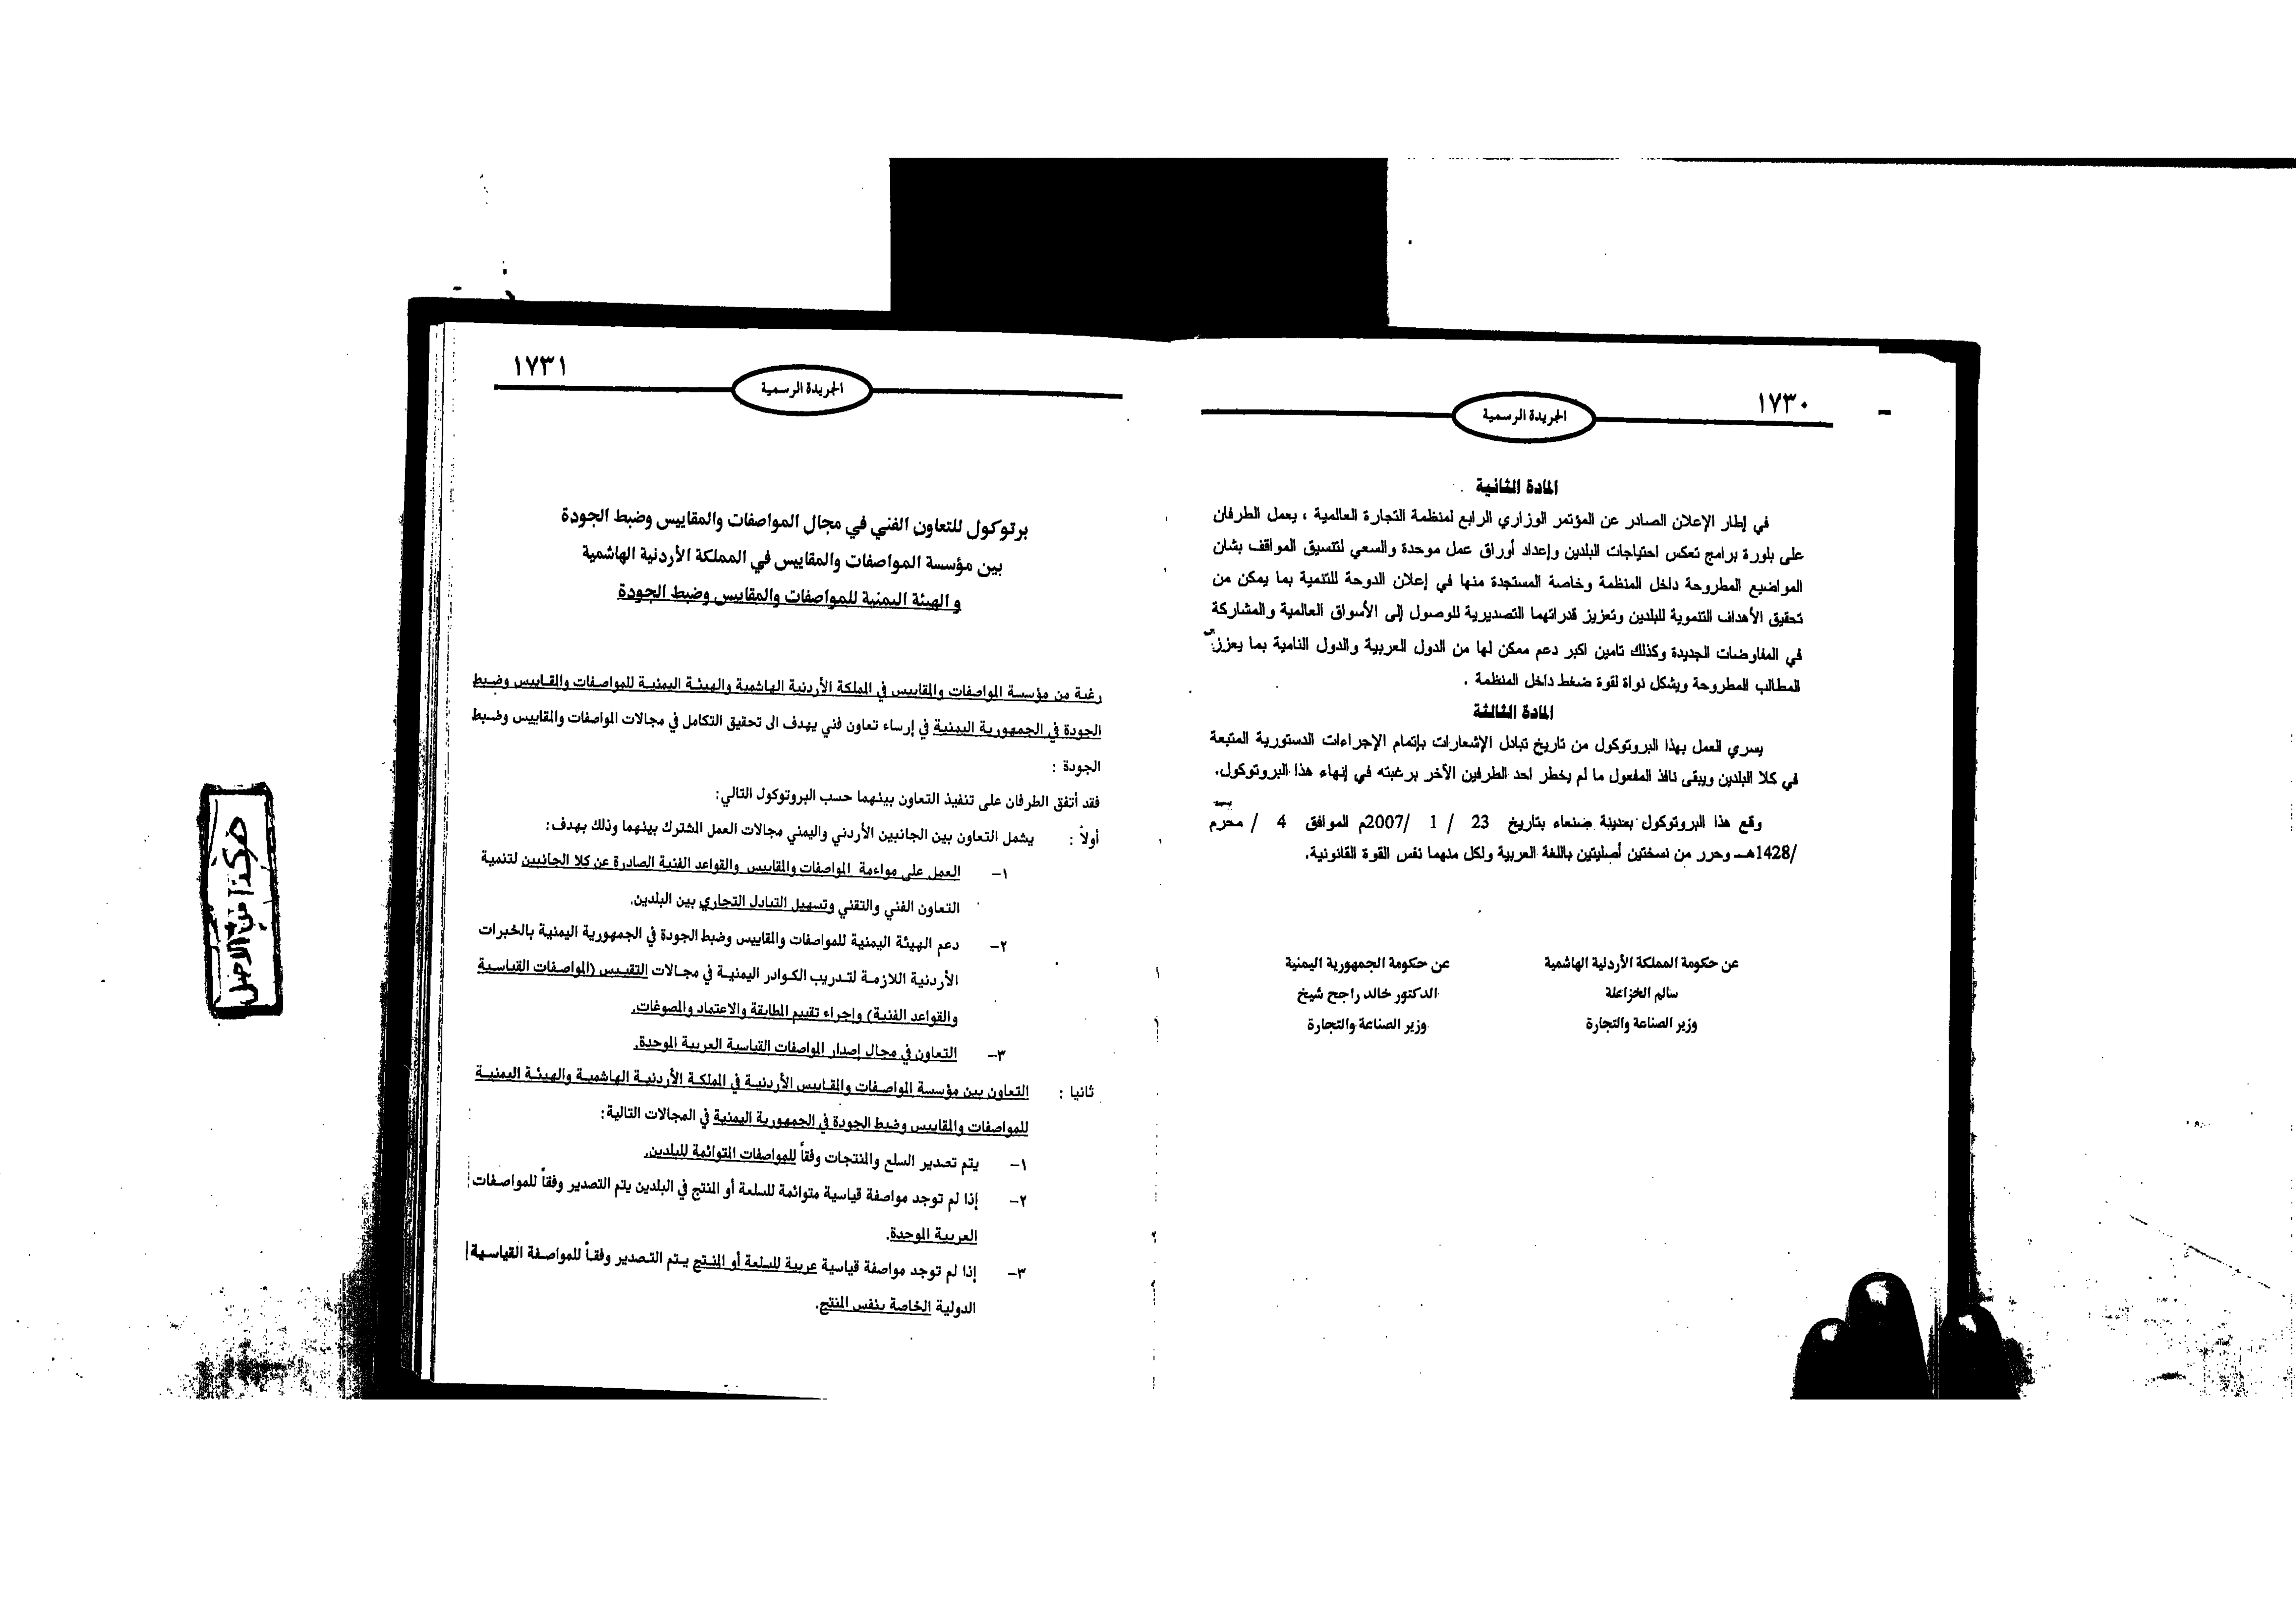 ١٧٣٠
الجريدة الرسمية
المادة الثانية
في إطار الإعلان الصادر عن المؤتمر الوزاري الرابع لمنظمة التجارة العالمية ، يعمل الطرفان
على بلورة برامج تعكس احتياجات البلدين وإعداد أوراق عمل موحدة والسعي لتنسيق المواقف بشان
المواضيع المطروحة داخل المنظمة وخاصة المستجدة منها في إعلان الدوحة للتنمية بما يمكن من
تحقيق الأهداف التنموية للبلدين وتعزيز قدراتهما التصديرية للوصول إلى الأسواق العالمية والمشاركة
في المفاوضات الجديدة وكذلك تامين اكبر دعم ممكن لها من الدول العربية والدول النامية بما يعزز
المطالب المطروحة ويشكل نواة لقوة ضغط داخل المنظمة .
المادة الثالثة
يسري العمل بهذا البروتوكول من تاريخ تبادل الإشعارات بإتمام الإجراءات الدستورية المتبعة
في كلا البلدين ويبقى نافذ المفعول ما لم يخطر احد الطرفين الآخر برغبته في إنهاء هذا البروتوكول.
وقع هذا البروتوكول بمدينة صنعاء بتاريخ 23 / 1 /2007م الموافق 4 / محرم
/1428هـ وحرر من نسختين أصليتين باللغة العربية ولكل منهما نفس القوة القانونية.
عن حكومة المملكة الأردنية الهاشمية
سالم الخزاعلة
وزير الصناعة والتجارة
عن حكومة الجمهورية اليمنية
الدكتور خالد راجح شيخ
وزير الصناعة والتجارة
١٧٣١
الجريدة الرسمية
برتوكول للتعاون الفني في مجال المواصفات والمقاييس وضبط الجودة
بين مؤسسة المواصفات والمقاييس في المملكة الأردنية الهاشمية
و الهيئة اليمنية للمواصفات والمقاييس وضبط الجودة
رغبة من مؤسسة المواصفات والمقاييس في المملكة الأردنية الهاشمية والهيئة اليمنية للمواصفات والمقاييس وضبط
الجودة في الجمهورية اليمنية في إرساء تعاون فني يهدف الى تحقيق التكامل في مجالات المواصفات والمقاييس وضبط
الجودة :
فقد أتفق الطرفان على تنفيذ التعاون بينهما حسب البروتوكول التالي:
أولاً : يشمل التعاون بين الجانبين الأردني واليمني مجالات العمل المشترك بينهما وذلك بهدف:
١- العمل على مواءمة المواصفات والمقاييس والقواعد الفنية الصادرة عن كلا الجانبين لتنمية
التعاون الفني والتقني وتسهيل التبادل التجاري بين البلدين.
٢- دعم الهيئة اليمنية للمواصفات والمقاييس وضبط الجودة في الجمهورية اليمنية بالخبرات
الأردنية اللازمة لتدريب الكوادر اليمنية في مجالات التقييس (المواصفات القياسية
والقواعد الفنية) وإجراء تقييم المطابقة والاعتماد والمصوغات.
٣- التعاون في مجال إصدار المواصفات القياسية العربية الموحدة.
ثانيا : التعاون بين مؤسسة المواصفات والمقاييس الأردنية في المملكة الأردنية الهاشمية والهيئة اليمنية
للمواصفات والمقاييس وضبط الجودة في الجمهورية اليمنية في المجالات التالية:
١- يتم تصدير السلع والمنتجات وفقاً للمواصفات المتوائمة للبلدين.
٢- إذا لم توجد مواصفة قياسية متوائمة للسلعة أو المنتج في البلدين يتم التصدير وفقاً للمواصفات
العربية الموحدة.
٣- إذا لم توجد مواصفة قياسية عربية للسلعة أو المنتج يتم التصدير وفقاً للمواصفة القياسية
الدولية الخاصة بنفس المنتج.
هكذا من الاصل